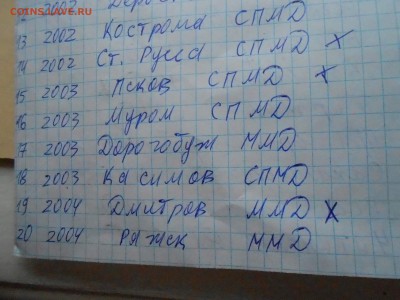 COINS.LAVE.RU
2002 Дерб
13 2002 Кострома СПМД
14 2002 Ст. Русса СПМД X
15 2003 Псков СПМД X
16 2003 Муром СПМД
17 2003 Дорогобуж ММД
18 2003 Касимов СПМД
19 2004 Дмитров ММД X
20 2004 Ряжск ММД